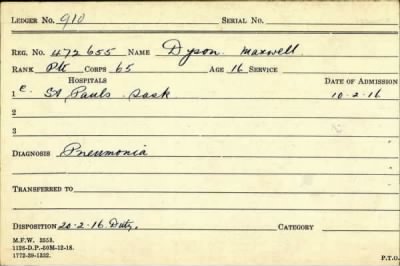 LEDGER NO. 910 SERIAL NO.
REG. NO. 472655 NAME Dyson Maxwell
RANK Pte CORPS 65 AGE 16 SERVICE
HOSPITALS DATE OF ADMISSION
1 c. St Pauls Sask 10-2-16
2
3
DIAGNOSIS Pneumonia
TRANSFERRED TO
DISPOSITION 20-2-16 Duty. CATEGORY
M.F.W. 2553.
1126-D.P.-50M-12-18.
1772-39-1332.
P.T.O.